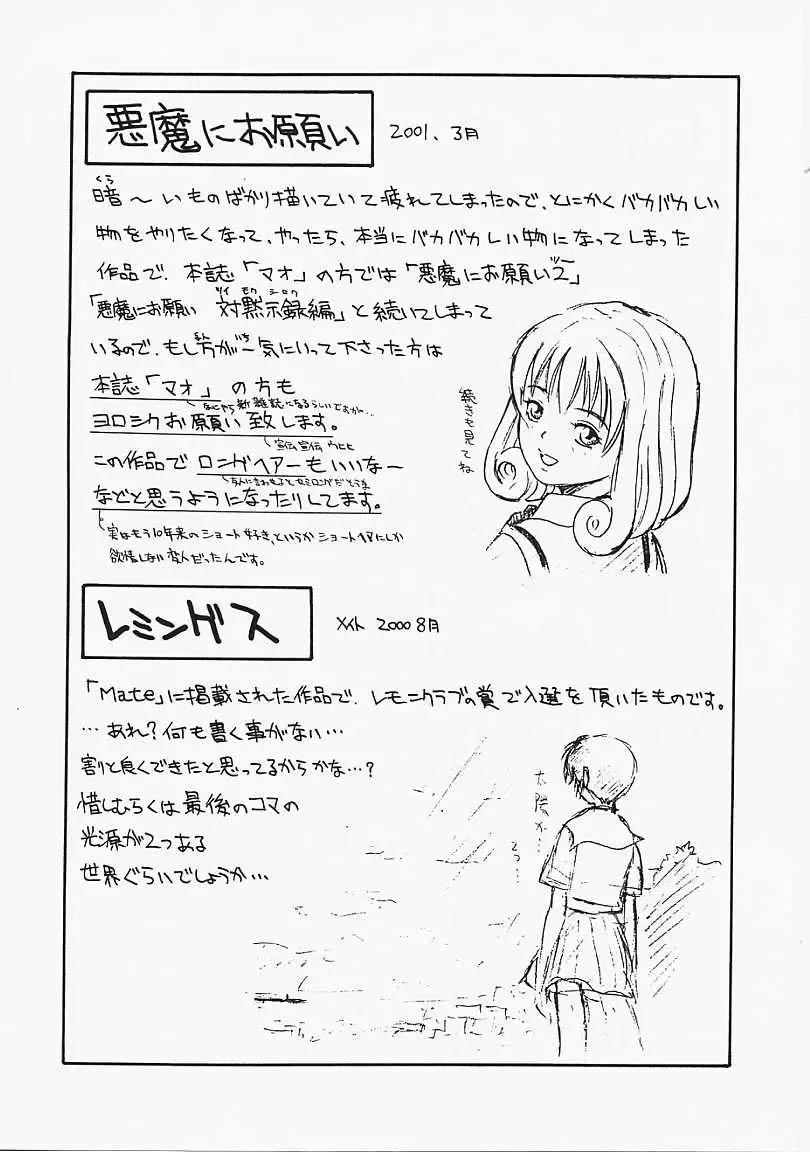 悪魔にお願い
2001、3月
くら
暗～いものばかり描いていて疲れてしまったので、とにかくバカバカしい
物をやりたくなって、やったら、本当にバカバカしい物になってしまった
作品で、本誌「マオ」の方では「悪魔にお願い2」
ツー
「悪魔にお願い 対黙示録編」と続いてしまって
ツイ モクシロク
いるので、もし万が一気にいって下さった方は
まん いち
本誌「マオ」の方も
なにやら新雑誌になるらしいですが…
ヨロシクお願い致します。
宣伝宣伝 ウヒヒ
この作品でロングヘアーもいいなー
などと思うようになったりしてます。
実はもう10年来のショート好き、というかショートヘアにしか
欲情しない変人だったんです。
続きも見てね
レミングス
メイト 2000 8月
「Mate」に掲載された作品で、レモンクラブの賞で入選を頂いたものです。
…あれ？何も書く事がない…
割と良くできたと思ってるからかな…？
惜しむらくは最後のコマの
光源が2つある
世界ぐらいでしょうか…
太陽が…
2つ…